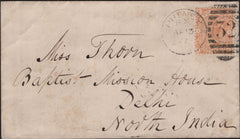 Miss Thorn
Baptist Mission House
Delhi
North India